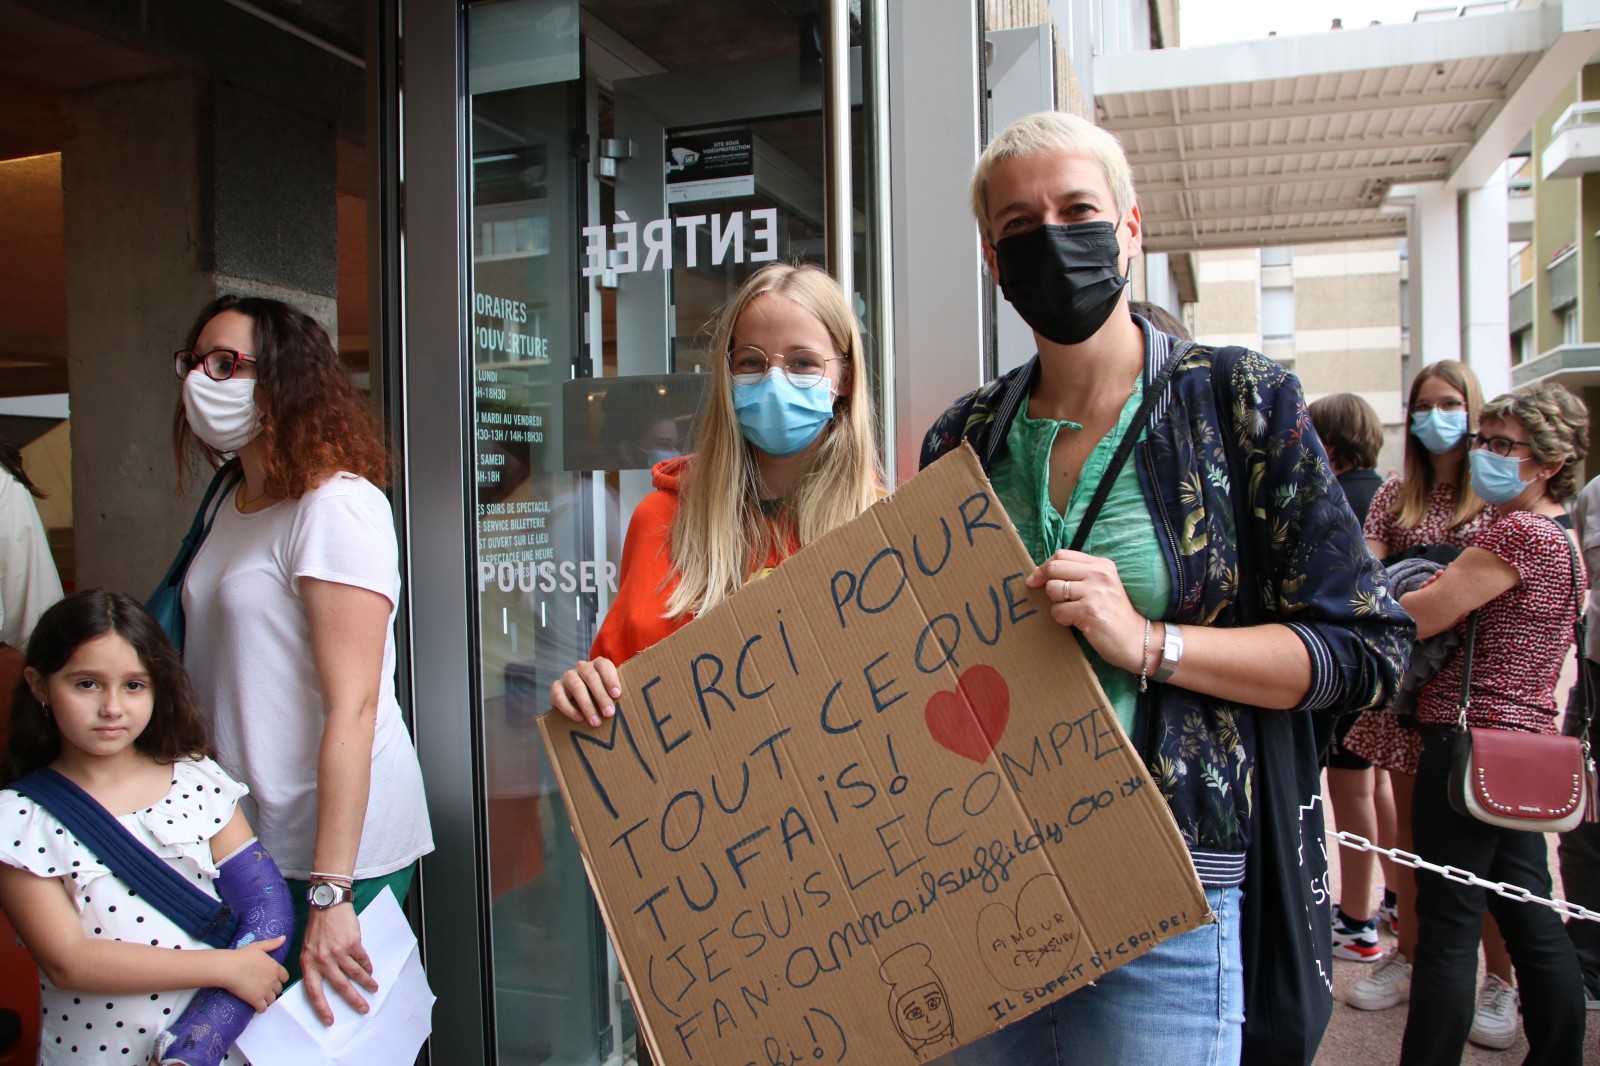 SITE SOUS
VIDÉOPROTECTION
ENTRÉE
HORAIRES
D'OUVERTURE
LUNDI
14H-18H30
DU MARDI AU VENDREDI
/ 14H-18H30
SAMEDI
14H-18H
LES SOIRS DE SPECTACLE,
LE SERVICE BILLETTERIE
EST OUVERT SUR LE LIEU
SPECTACLE UNE HEURE
POUSSER
MERCI POUR
TOUT CE QUE
TU FAIS!
(JE SUIS LE COMPTE
FAN: ammailsuffitdy.
!)
AMOUR
CENSURE
IL SUFFIT D'Y CROIRE!